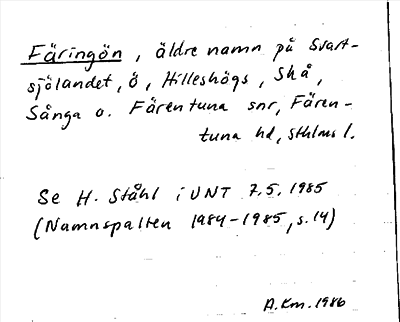 Färingön, äldre namn på Svart-
sjölandet, ö, Hilleshögs, Skå,
Sånga o. Färentuna snr, Fären-
tuna hd, Sthlms l.
Se H. Ståhl i UNT 7.5. 1985
(Namnspalten 1984-1985, s. 14)
A.Km. 1986